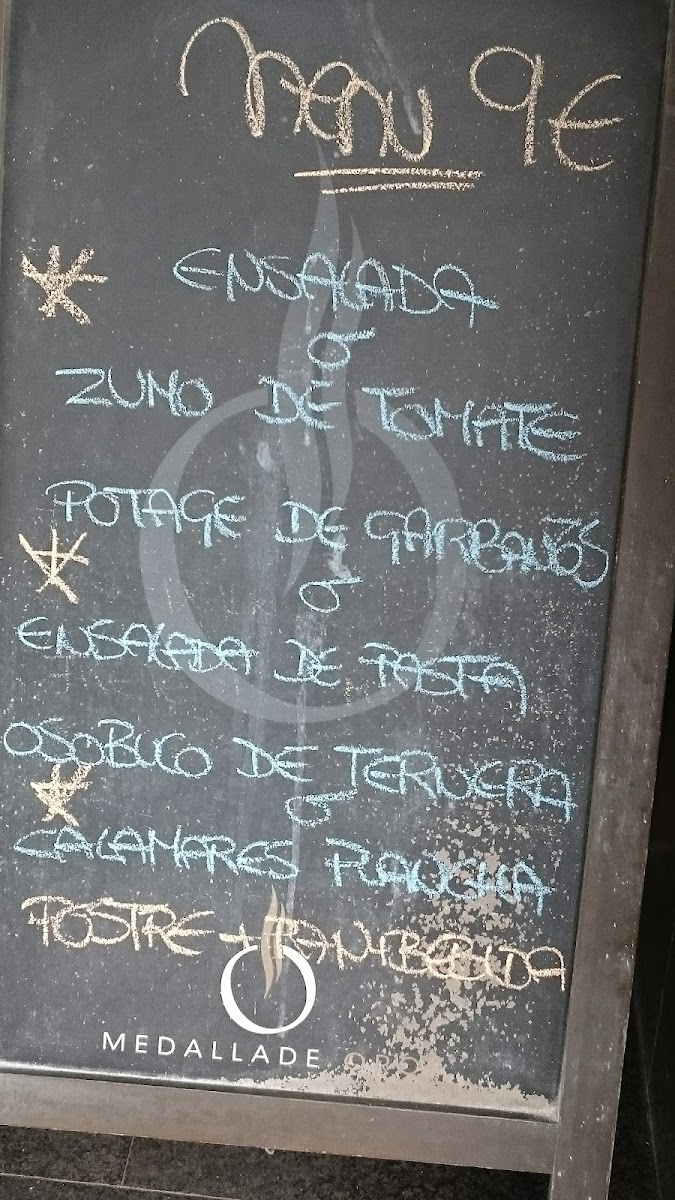 Menu 9€
* ENSALADA
o
ZUMO DE TOMATE
POTAGE DE GARBANZOS
* o
ENSALADA DE PASTA
OSOBUCO DE TERNERA
* o
CALAMARES PLANCHA
POSTRE + PAN + BEBIDA
MEDALLADE ORO